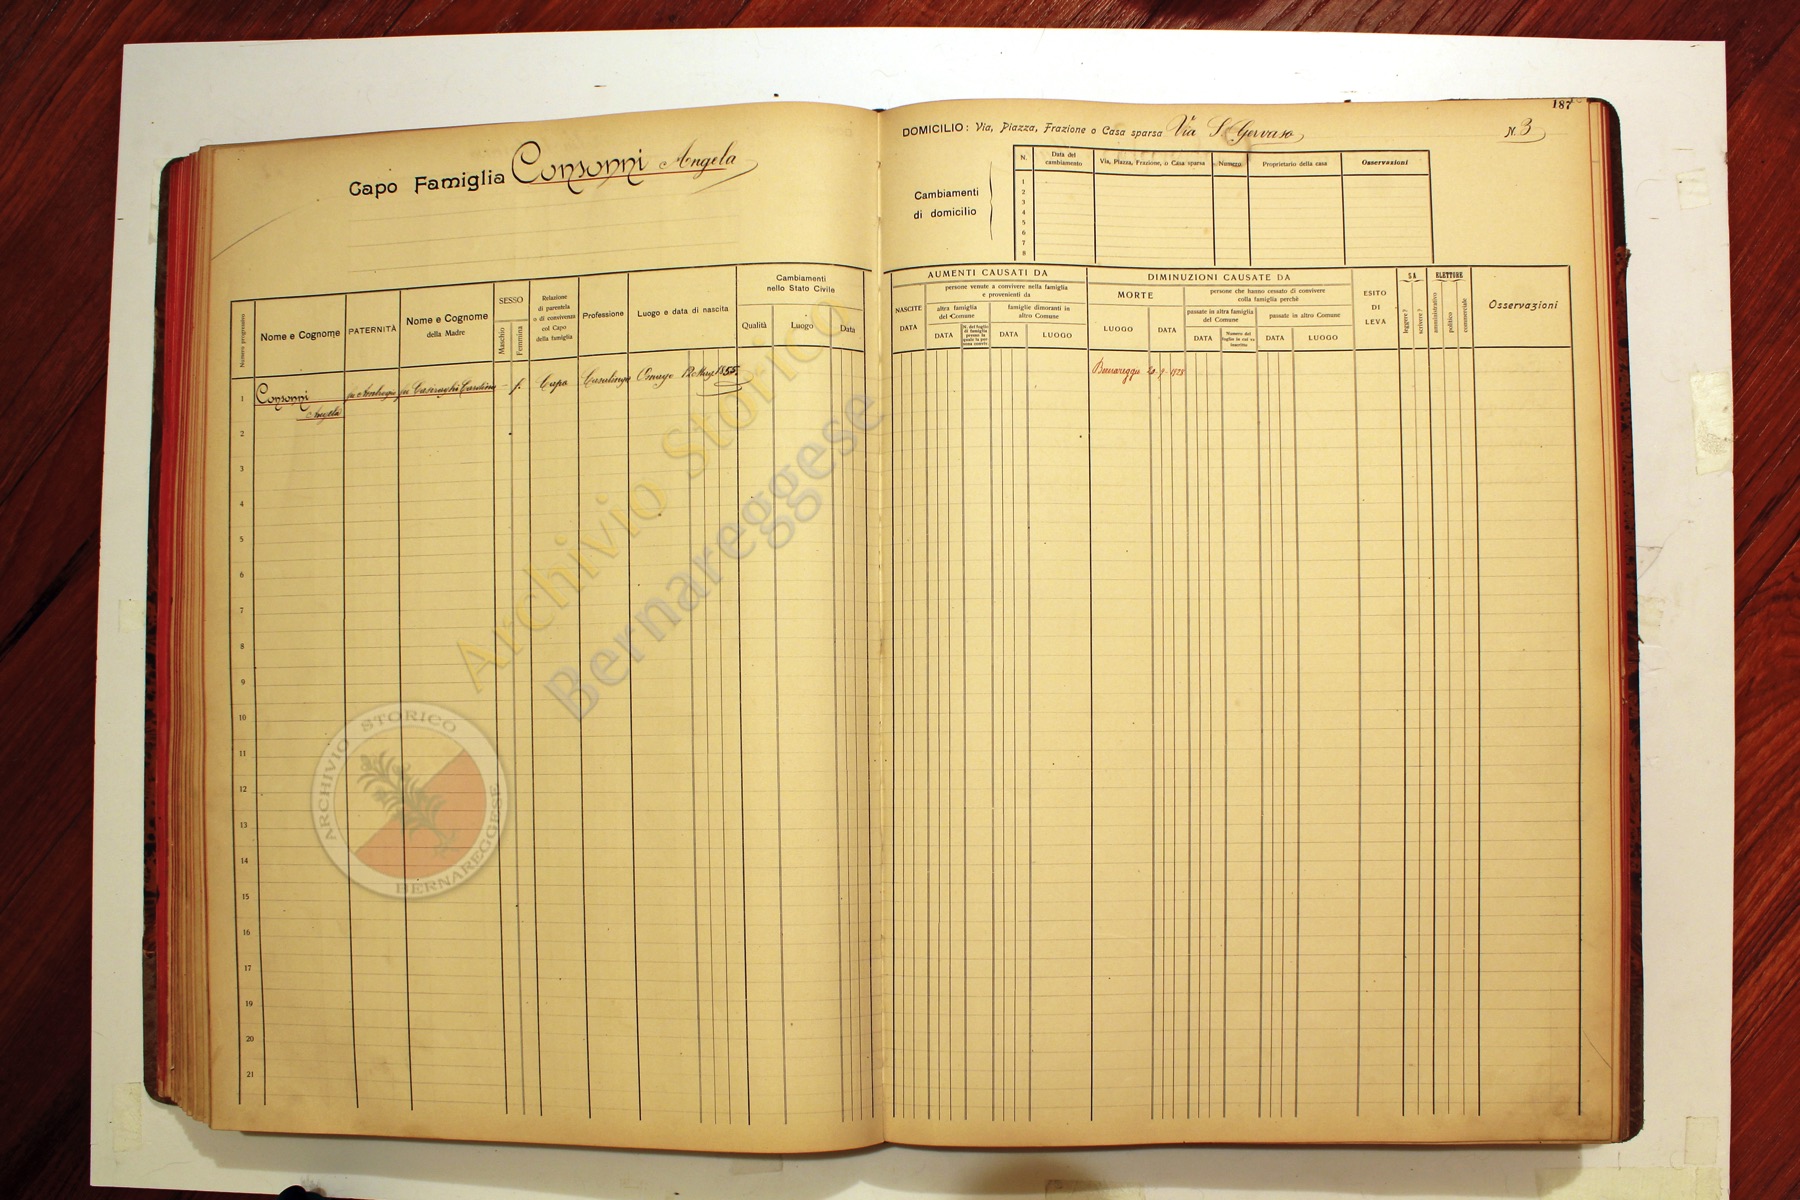 187
Capo Famiglia Consonni Angela
DOMICILIO: Via, Piazza, Frazione o Casa sparsa Via S. Gervaso N. 3
Cambiamenti di domicilio
N. Data del cambiamento Via, Piazza, Frazione, o Casa sparsa Numero Proprietario della casa Osservazioni
1
2
3
4
5
6
7
8
Numero progressivo
Nome e Cognome
PATERNITÀ
Nome e Cognome della Madre
SESSO
Maschio
Femmina
Relazione di parentela o di convivenza col Capo della famiglia
Professione
Luogo e data di nascita
Cambiamenti nello Stato Civile
Qualità Luogo Data
AUMENTI CAUSATI DA
NASCITE
DATA
persone venute a convivere nella famiglia e provenienti da
altra famiglia del Comune
DATA
N. del foglio di famiglia presso la quale la persona convive
famiglie dimoranti in altro Comune
DATA LUOGO
DIMINUZIONI CAUSATE DA
MORTE
LUOGO DATA
persone che hanno cessato di convivere colla famiglia perchè
passate in altra famiglia del Comune
DATA
Numero del foglio in cui va inscritto
passate in altro Comune
DATA LUOGO
ESITO DI LEVA
SA
leggere?
scrivere?
ELETTORE
amministrativo
politico
commerciale
Osservazioni
1 Consonni Angela fu Ambrogio fu Casiraghi Carolina – f. Capo Casalinga 12 1855 Bernareggio 1928
2
3
4
5
6
7
8
9
10
11
12
13
14
15
16
17
18
19
20
21
Archivio Storico
Bernareggese
ARCHIVIO STORICO
BERNAREGGESE